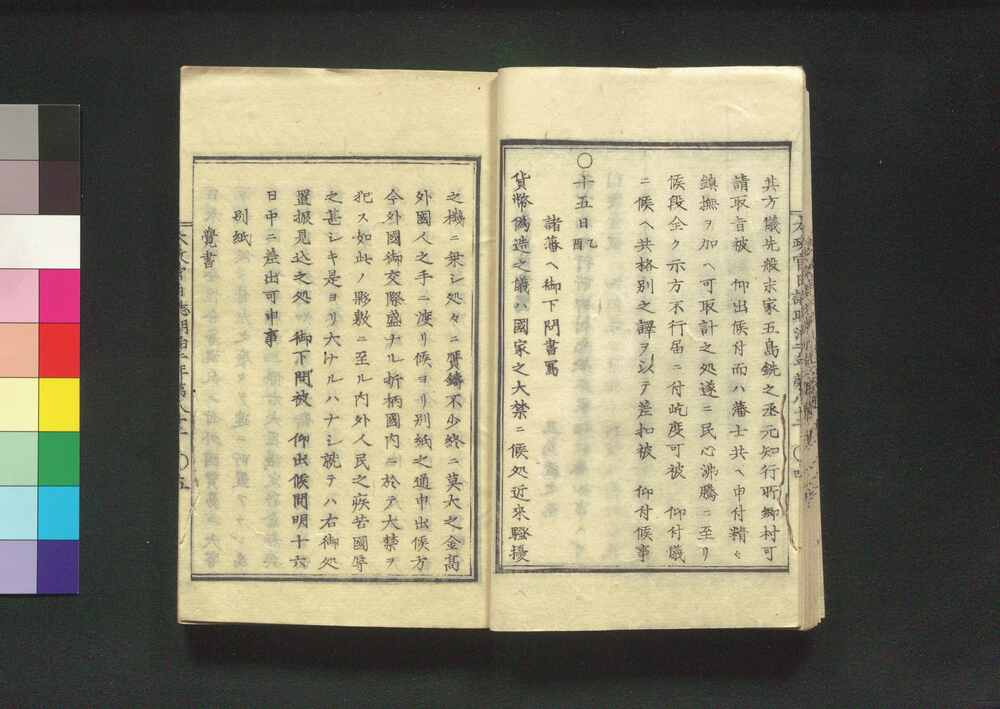 其方儀先般末家五島銑之丞元知行所郷村可
請取旨被　仰出候付而ハ藩士共ヘ申付精々
鎮撫ヲ加ヘ可取計之処遂ニ民心沸騰ニ至リ
候段全ク示方不行届ニ付屹度可被　仰付儀
ニ候ヘ共格別之譯ヲ以テ差扣被　仰付候事
〇十五日乙酉
諸藩ヘ御下問書寫
貨幣偽造之儀ハ國家之大禁ニ候処近來騒擾
之機ニ乗シ処々ニ贋鋳不少終ニ莫大之金高
外國人之手ニ渡リ候ヨリ別紙之通申出候方
今外國御交際盛ナル折柄國内ニ於テ大禁ヲ
犯ス如此ノ夥敷ニ至ル内外人民之疾苦國辱
之甚シキ是ヨリ大ナルハナシ就テハ右御処
置振見込之処御下問被　仰出候間明十六
日中ニ差出可申事
別紙
覺書